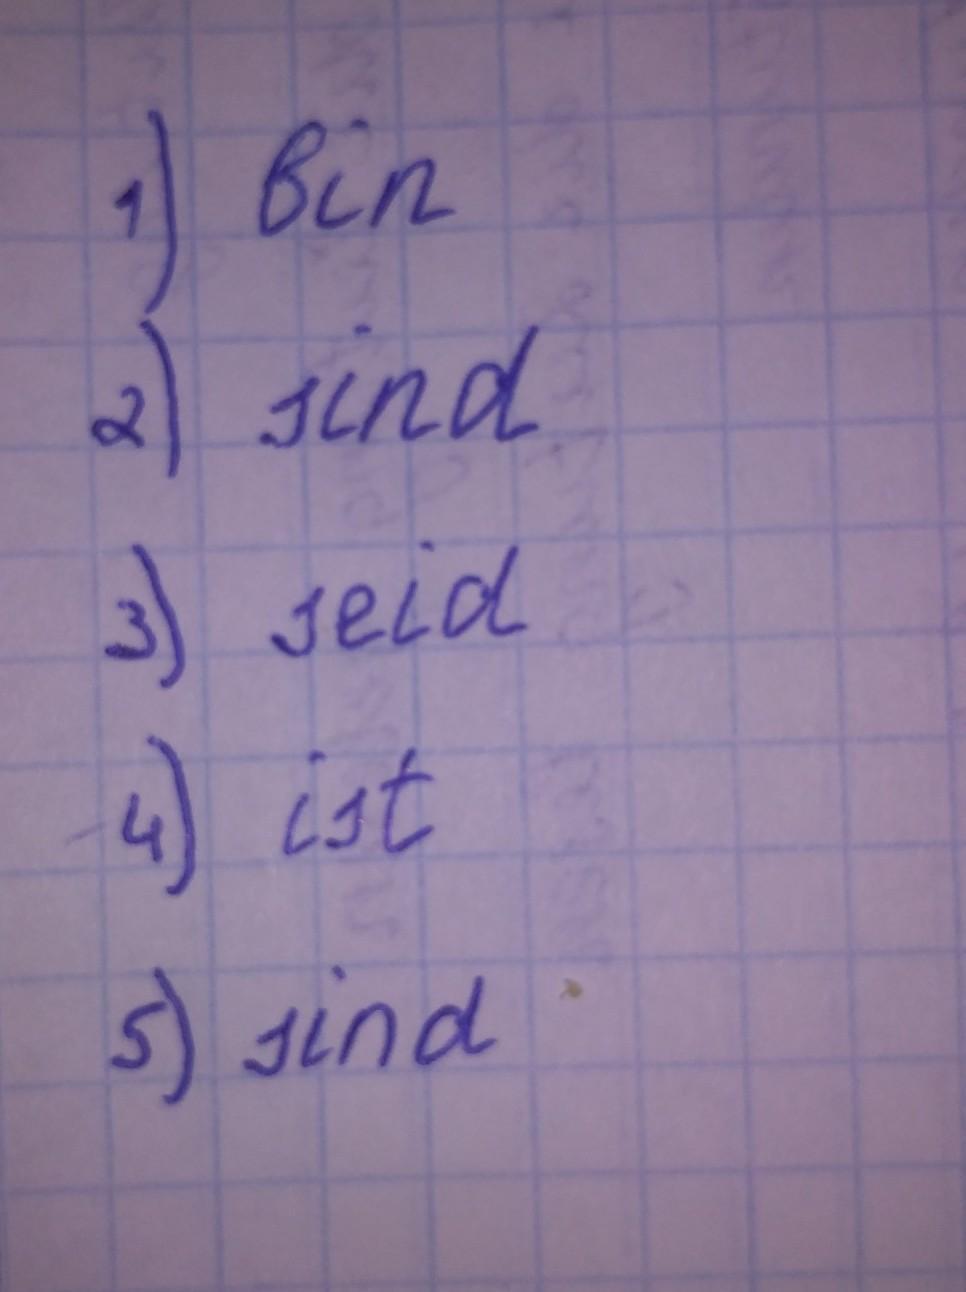 1) bin
2) sind
3) seid
4) ist
5) sind